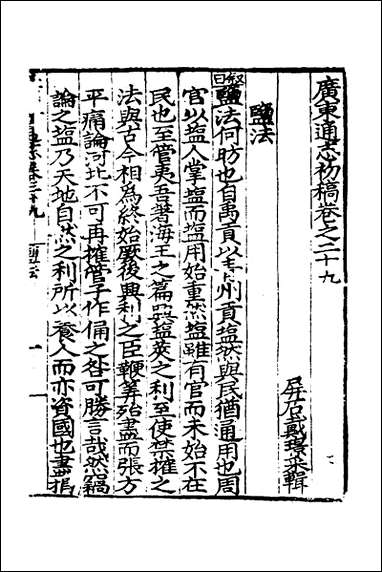 廣東通志初稿卷之二十九
屏石戴璟采輯
鹽法
敍曰鹽法何昉也自禹貢以青州貢塩然與民猶通用也周
官以塩人掌塩而塩用始重然塩雖有官而未始不在
民也至管夷吾著海王之篇興塩莢之利至使禁搉之
法與古今相爲終始厥後興利之臣鞭筭殆盡而張方
平痛論河北不可再搉管子作俑之咎可勝言哉然竊
論之塩乃天地自然之利所以養人而亦資國也盡捐